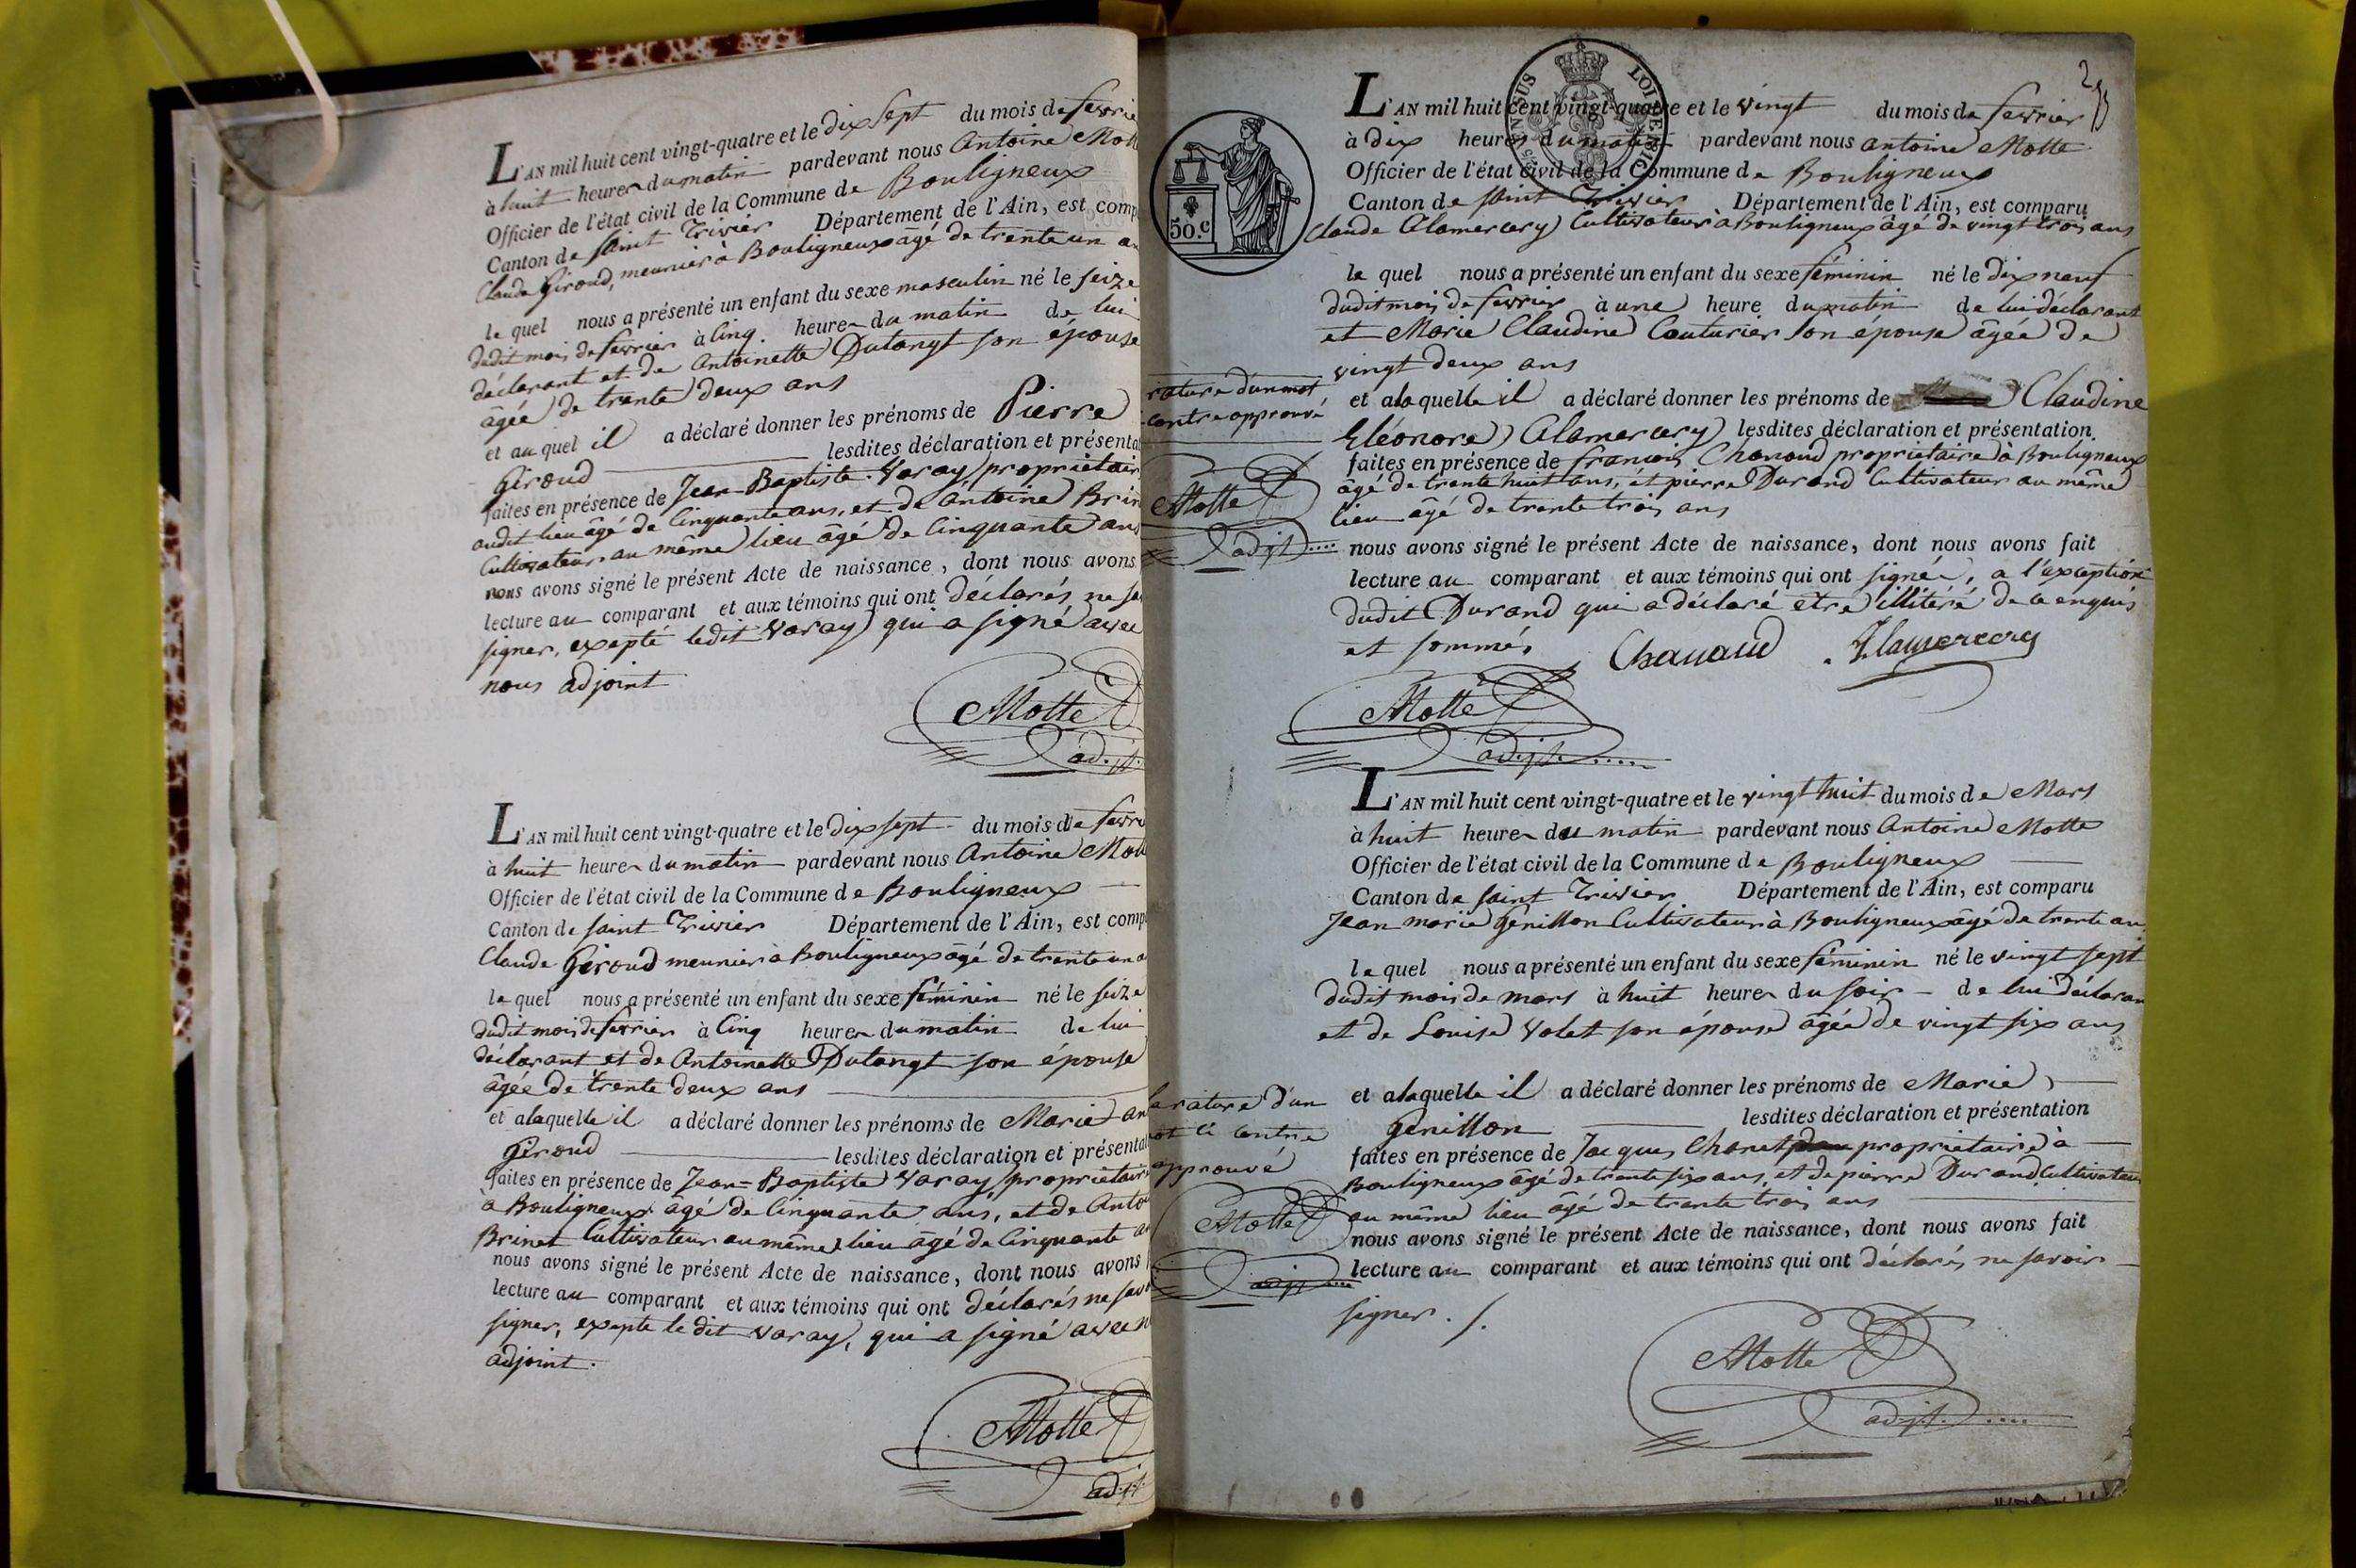 L'AN mil huit cent vingt-quatre et le dix sept du mois de fevrie
à huit heures du matin pardevant nous Antoine Mott
Officier de l'état civil de la Commune de Bouligneux
Canton de saint Trivier Département de l'Ain, est comp
Claude Giroud, meunier à Bouligneux âgé de trente un a
le quel nous a présenté un enfant du sexe masculin né le seize
dudit mois de fevrier à cinq heures du matin de lui
déclarant et de Antoinette Dutangt son épouse
âgée de trente deux ans
et au quel il a déclaré donner les prénoms de Pierre
Giroud lesdites déclaration et présenta
faites en présence de Jean-Baptiste Varay propriétair
audit lieu âgé de cinquante ans, et de antoine Brin
Cultivateur au même lieu âgé de cinquante ans
nous avons signé le présent Acte de naissance, dont nous avons
lecture au comparant et aux témoins qui ont déclarés ne sa
signer, expepté ledit Varay qui a signé avec
nous adjoint
Motte
adjt
L'AN mil huit cent vingt-quatre et le dix sept du mois de fevri
à huit heures du matin pardevant nous Antoine Mott
Officier de l'état civil de la Commune de Bouligneux
Canton de saint Trivier Département de l'Ain, est comp
Claude Giroud meunier à Bouligneux âgé de trente un a
le quel nous a présenté un enfant du sexe féminin né le seize
dudit mois de fevrier à cinq heures du matin de lui
déclarant et de Antoinette Dutangt son épouse
âgée de trente deux ans
et a laquelle il a déclaré donner les prénoms de Marie an
Giroud lesdites déclaration et présentat
faites en présence de Jean-Baptiste Varay propriétaire
à Bouligneux âgé de cinquante ans, et de Anto
Brinet Cultivateur au même lieu âgé de cinquante a
nous avons signé le présent Acte de naissance, dont nous avons
lecture au comparant et aux témoins qui ont déclarés ne savo
signer, expepté le dit Varay, qui a signé avec n
adjoint.
Motte
adjt
50.c
L'AN mil huit cent vingt-quatre et le vingt du mois de fevrier
à dix heures du matin pardevant nous antoine Motte
Officier de l'état civil de la Commune de Bouligneux
Canton de saint Trivier Département de l'Ain, est comparu
Claude Alamercery Cultivateur à Bouligneux âgé de vingt trois ans
le quel nous a présenté un enfant du sexe féminin né le dix neuf
dudit mois de fevrier à une heure du matin de lui déclarant
et Marie Claudine Couturier son épouse âgée de
vingt deux ans
et a laquelle il a déclaré donner les prénoms de Claudine
Eléonore Alamercery lesdites déclaration et présentation
faites en présence de francois Chanaud propriétaire à Bouligneux
âgé de trente huit ans, et pierre Durand Cultivateur au même
lieu âgé de trente trois ans
nous avons signé le présent Acte de naissance, dont nous avons fait
lecture au comparant et aux témoins qui ont signés, a l'exception
dudit Durand qui a déclaré etre illitéré de ce enquis
et sommés
rature d'un mot
contre approuvé
Motte
adjt
Chanaud Alamercery
Motte
adjt
L'AN mil huit cent vingt-quatre et le vingt huit du mois de Mars
à huit heures du matin pardevant nous Antoine Motte
Officier de l'état civil de la Commune de Bouligneux
Canton de saint Trivier Département de l'Ain, est comparu
Jean marie Genillon Cultivateur à Bouligneux âgé de trente an
le quel nous a présenté un enfant du sexe féminin né le vingt sept
dudit mois de mars à huit heures du soir de lui déclaran
et de Louise Volet son épouse âgée de vingt six ans
et a laquelle il a déclaré donner les prénoms de Marie
Genillon lesdites déclaration et présentation
faites en présence de Jacques Charet propriétaire à
Bouligneux âgé de trente six ans, et de pierre Durand Cultivateur
au même lieu âgé de trente trois ans
nous avons signé le présent Acte de naissance, dont nous avons fait
lecture au comparant et aux témoins qui ont déclarés ne savoir
signer.
la rature d'un
mot ci contre
approuvé
Motte
adjt
Motte
adjt